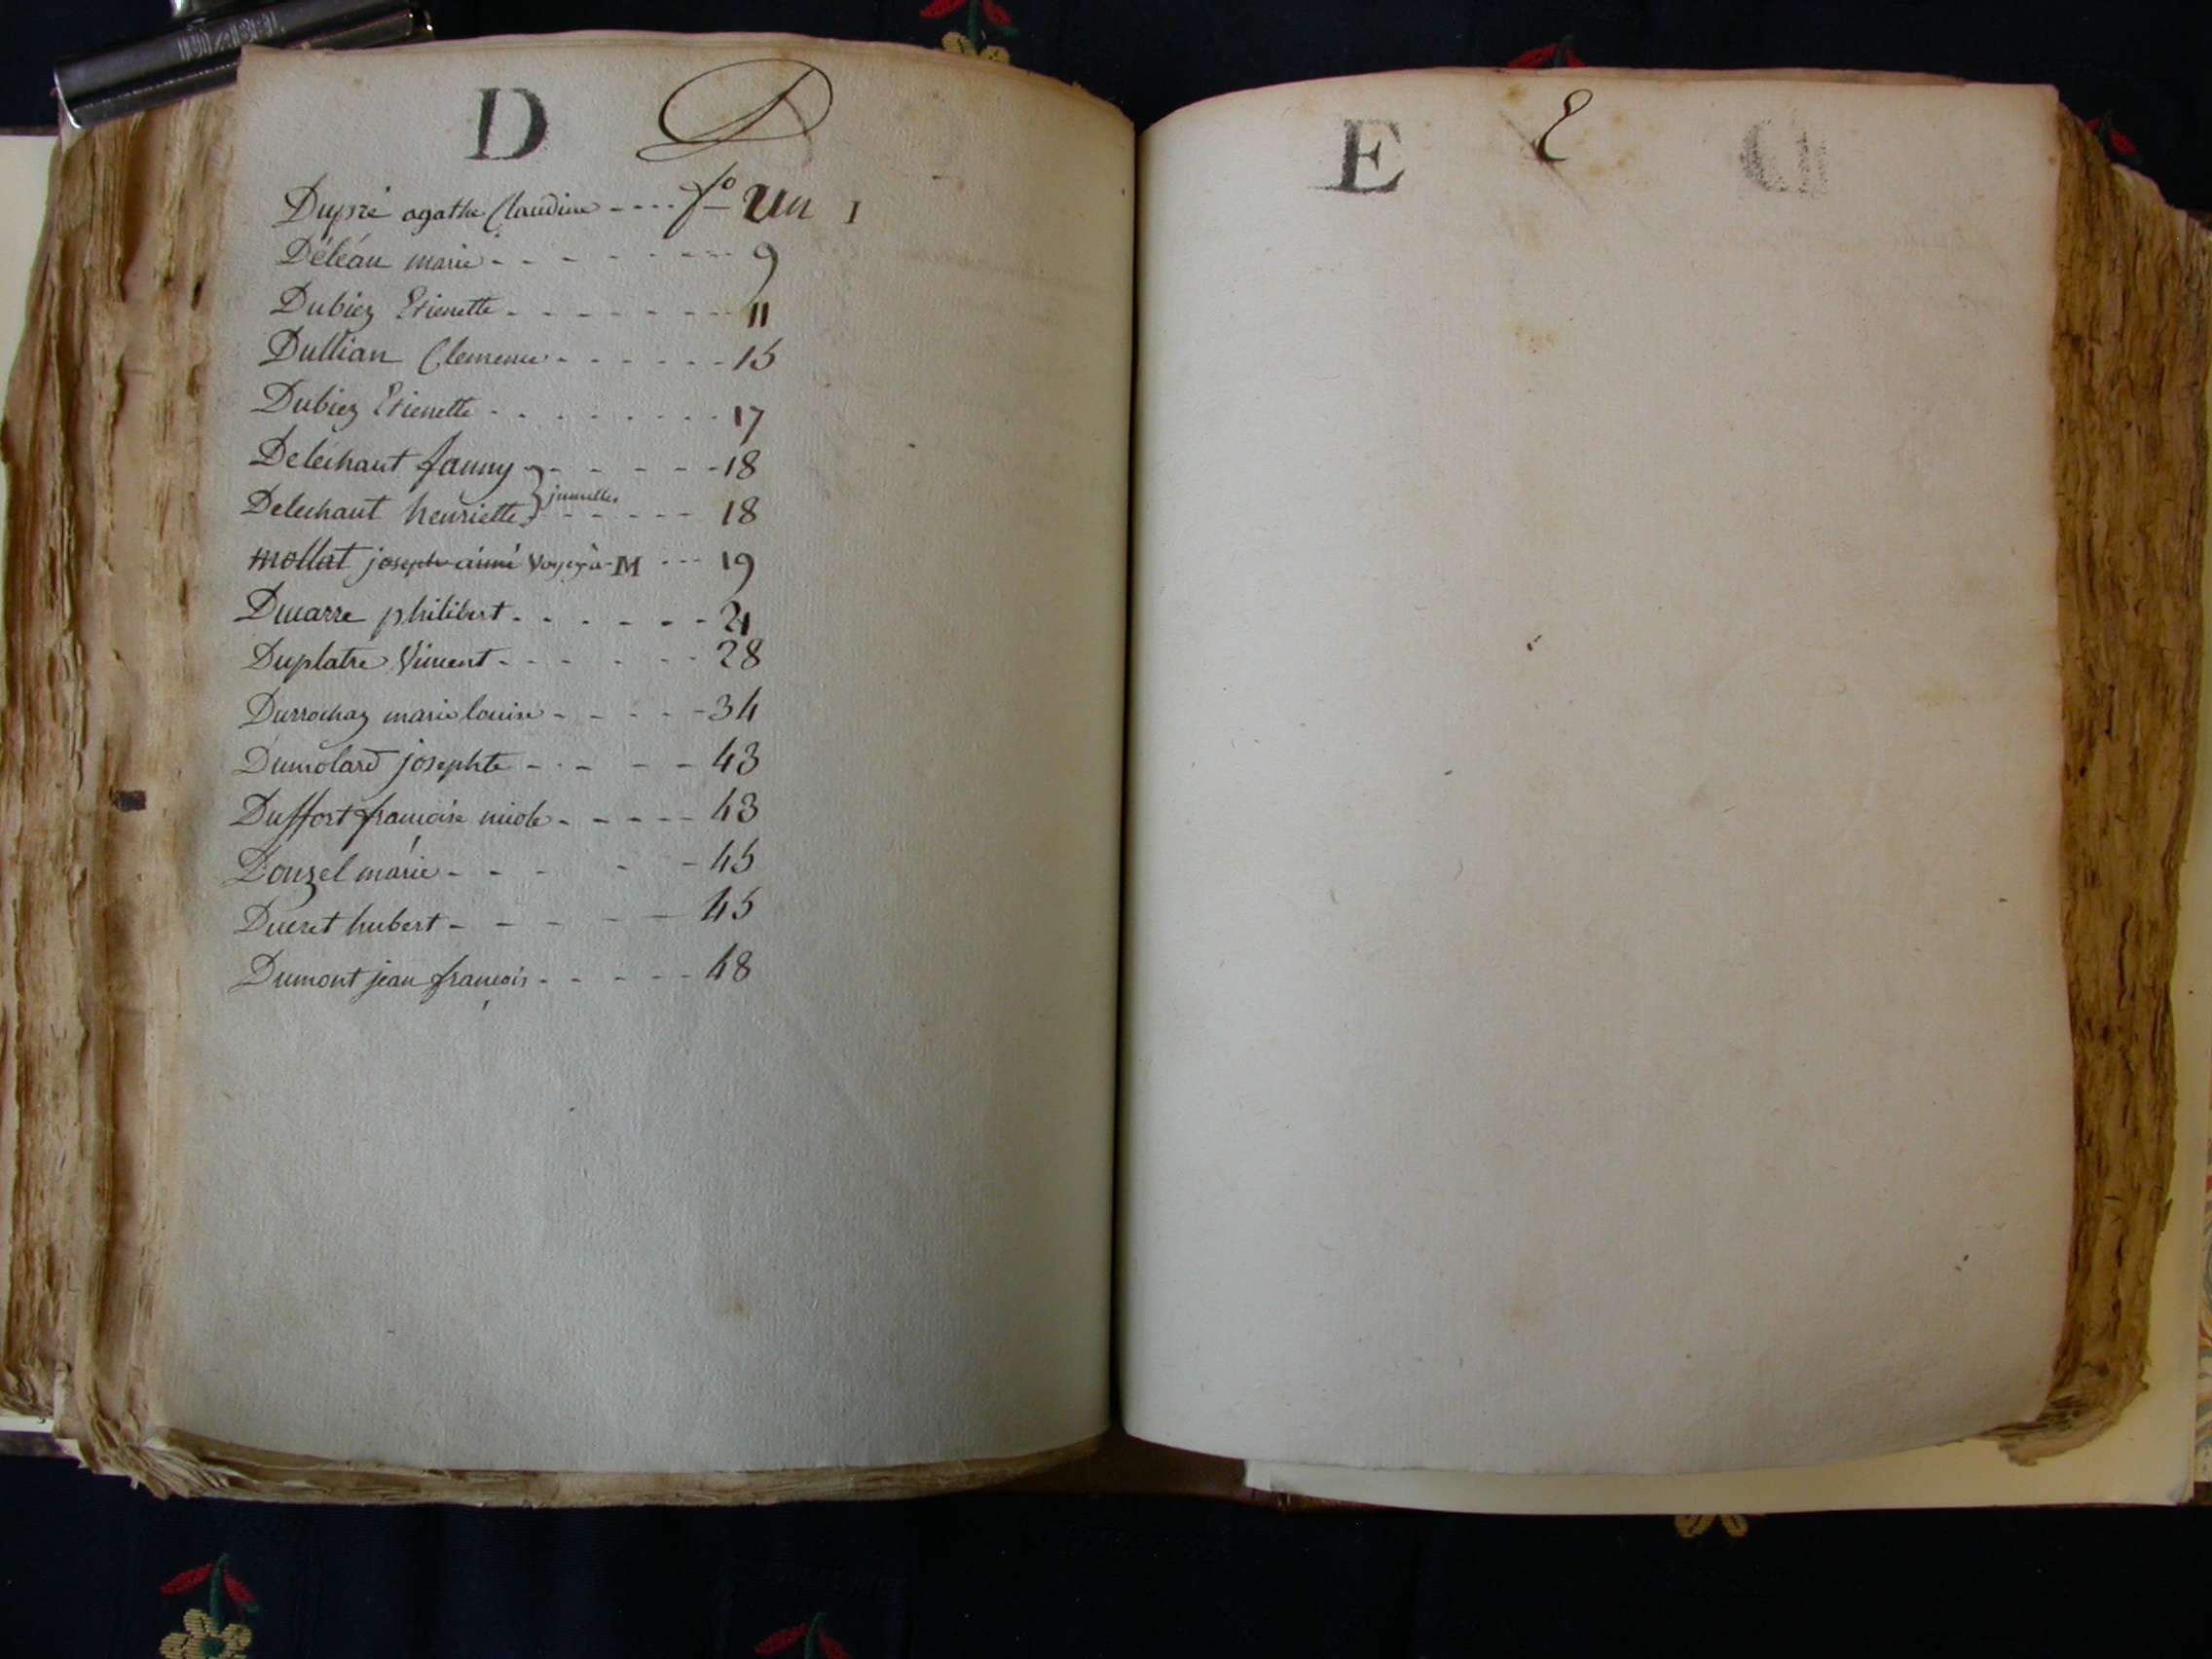 D D
Dupré agathe Claudine ---- fo un 1
Déléan marie - - - - - - - - 9
Dubiez Etienette - - - - - - - 11
Dullian Clemence - - - - - - 15
Dubiez Etienette - - - - - - - - 17
Deléchaut fanny - - - - - - 18
jumelles
Delechaut henriette - - - - - - 18
mollat joseph aimé Voyez à M --- 19
Ducarre philibert - - - - - - 21
Duplatre Vincent - - - - - - 28
Durrochaz marie louise - - - - - 34
Dumolard josephte - - - - - 43
Duffort françoise - - - - - 43
Douzel marie - - - - - 45
Ducret hubert - - - - - 45
Dumont jean françois - - - - - 48
E E